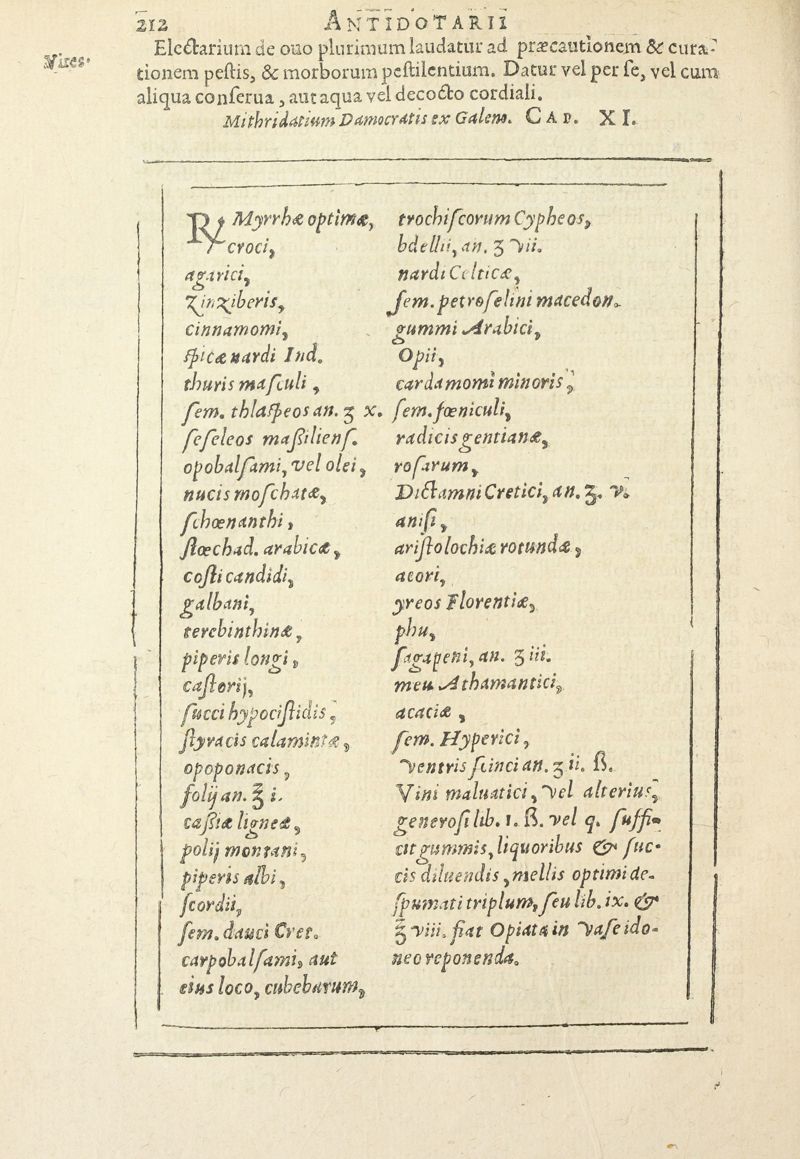 212 ANTIDOTARII
Vires.
Electarium de ouo plurimum laudatur ad præcautionem & cura-
tionem peſtis, & morborum peſtilentium. Datur vel per ſe, vel cum
aliqua conſerua, aut aqua vel decocto cordiali.
Mithridatium Damocratis ex Galeno. CAP. XI.
℞ Myrrhæ optimæ,
croci,
agarici,
Zinziberis,
cinnamomi,
ſpicæ nardi Ind.
thuris maſculi,
ſem. thlaſpeos an. ʒ x.
ſeſeleos maſſilienſ.
opobalſami, vel olei,
nucis moſchatæ,
ſchœnanthi,
ſtœchad. arabicæ,
coſti candidi,
galbani,
terebinthinæ,
piperis longi,
caſtorij,
ſucci hypociſtidis,
ſtyracis calamintæ,
opoponacis,
folij an. ℥ i.
caſſiæ ligneæ,
polij montani,
piperis albi,
ſcordii,
ſem. dauci Cret.
carpobalſami, aut
eius loco, cubebarum,
trochiſcorum Cypheos,
bdellii, an. ʒ vii.
nardi Celticæ,
ſem. petroſelini macedon.
gummi Arabici,
Opii,
cardamomi minoris,
ſem. fœniculi,
radicis gentianæ,
roſarum,
Dictamni Cretici, an. ʒ. v.
aniſi,
ariſtolochiæ rotundæ,
acori,
yreos Florentiæ,
phu,
ſagapeni, an. ʒ iii.
meu Athamantici,
acaciæ,
ſem. Hyperici,
ventris ſcinci an. ʒ ii. ß.
Vini maluatici, vel alterius,
generoſi lib. 1. ß. vel q. ſuffi-
cit gummis, liquoribus & ſuc-
cis diluendis, mellis optimi de-
ſpumati triplum, ſeu lib. ix. &
℥ viii. fiat Opiata in vaſe ido-
neo reponenda.